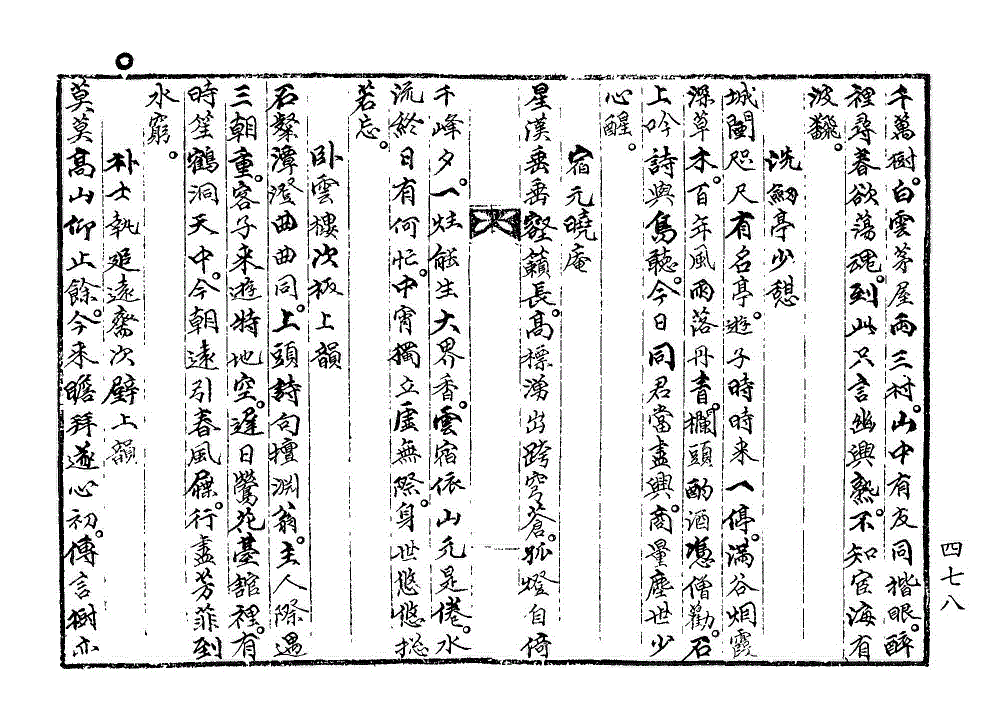 千萬樹。白雲茅屋兩三村。山中有友同揩眼。醉
裡尋春欲蕩魂。到此只言幽興熟。不知宦海有
波飜。
洗劒亭少憩
城闉咫尺有名亭。遊子時時来一停。滿谷烟霞
深草木。百年風雨落丹青。欄頭酌酒憑僧勸。石
上吟詩與鳥聽。今日同君當盡興。商量塵世少
心醒。
宿元曉庵
星漢垂垂壑籟長。高標湧出跨穹蒼。孤燈自倚
千峰夕。一炷能生大界香。雲宿依山元是倦。水
流終日有何忙。中宵獨立虛無際。身世悠悠摠
若忘。
卧雲樓次板上韻
石粲潭澄曲曲同。上頭詩句擅淵翁。主人際遇
三朝重。客子来遊特地空。遲日鶯花臺舘裡。有
時笙鶴洞天中。今朝遠引春風屧。行盡芳菲到
水窮。
朴士執追遠齋次壁上韻
莫莫高山仰止餘。今来瞻拜遂心初。傳言樹亦
四七八